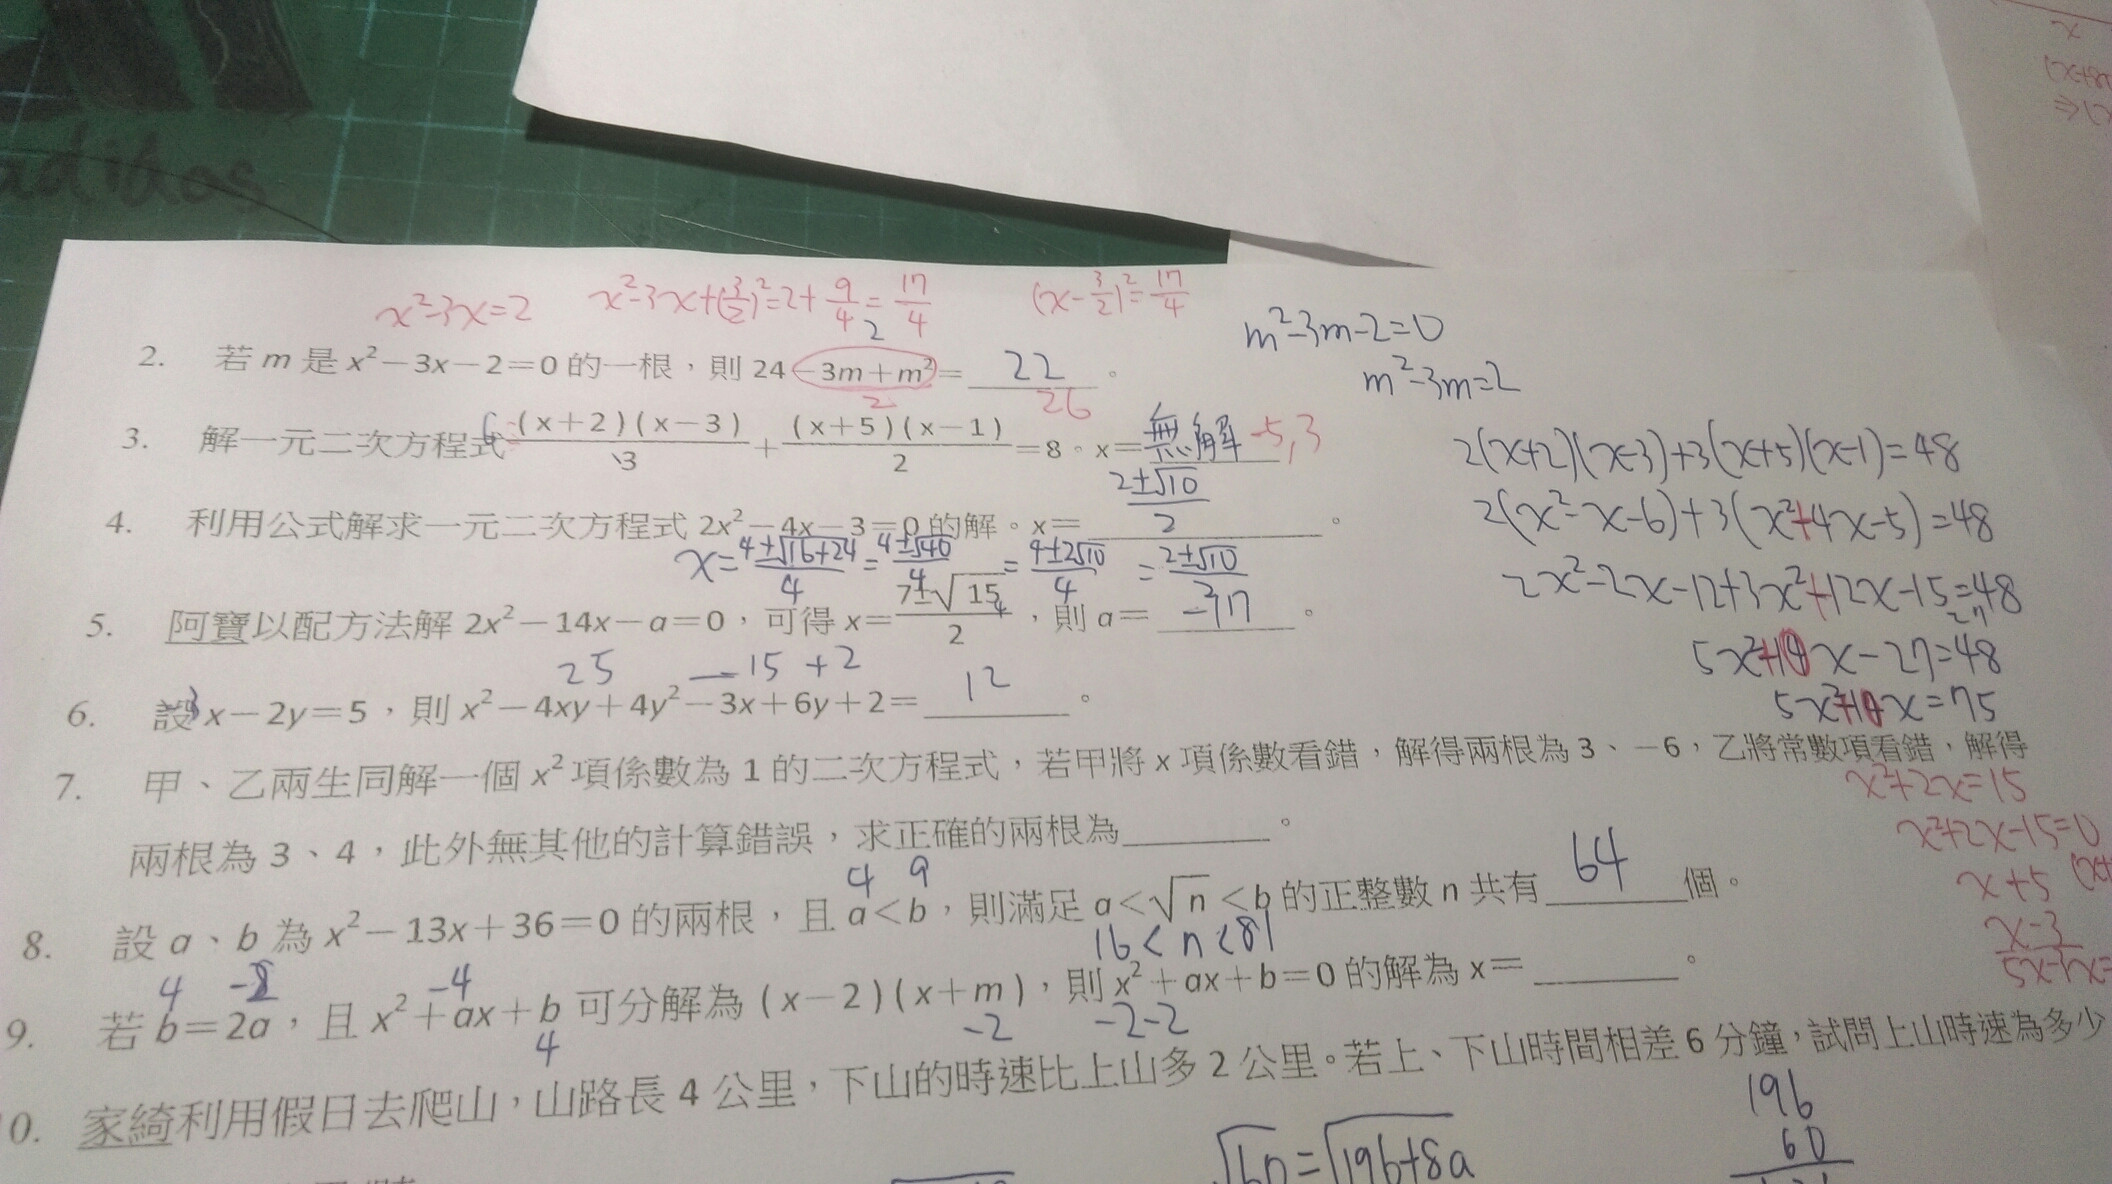 adidas
x²-3x=2 x²-3x+(3/2)²=2+9/4=17/4 (x-3/2)²=17/4
m²-3m-2=0
m²-3m=2
2
2. 若 m 是 x²-3x-2=0 的一根,則 24-3m+m²= 22 。
2 26
3. 解一元二次方程式 (x+2)(x-3)/3 + (x+5)(x-1)/2 =8。x= 無解 -5,3
2(x+2)(x-3)+3(x+5)(x-1)=48
2(x²-x-6)+3(x²+4x-5)=48
2x²-2x-12+3x²+12x-15=48
27
5x²+10x-27=48
5x²+10x=75
x²+2x=15
x²+2x-15=0
x+5
x-3
4. 利用公式解求一元二次方程式 2x²-4x-3=0 的解。x= (2±√10)/2 。
x=(4±√(16+24))/4=(4±√40)/4=(4±2√10)/4=(2±√10)/2
5. 阿寶以配方法解 2x²-14x-a=0,可得 x=(7±√15)/2,則 a= -17 。
25 -15 +2
6. 設 x-2y=5,則 x²-4xy+4y²-3x+6y+2= 12 。
7. 甲、乙兩生同解一個 x² 項係數為 1 的二次方程式,若甲將 x 項係數看錯,解得兩根為 3、-6,乙將常數項看錯,解得
兩根為 3、4,此外無其他的計算錯誤,求正確的兩根為 。
4 9
8. 設 a、b 為 x²-13x+36=0 的兩根,且 a<b,則滿足 a<√n<b 的正整數 n 共有 64 個。
16<n<81
4 -2 -4
9. 若 b=2a,且 x²+ax+b 可分解為 (x-2)(x+m),則 x²+ax+b=0 的解為 x= 。
4 -2 -2-2
10. 家綺利用假日去爬山,山路長 4 公里,下山的時速比上山多 2 公里。若上、下山時間相差 6 分鐘,試問上山時速為多少
√60=√196+8a
196
60